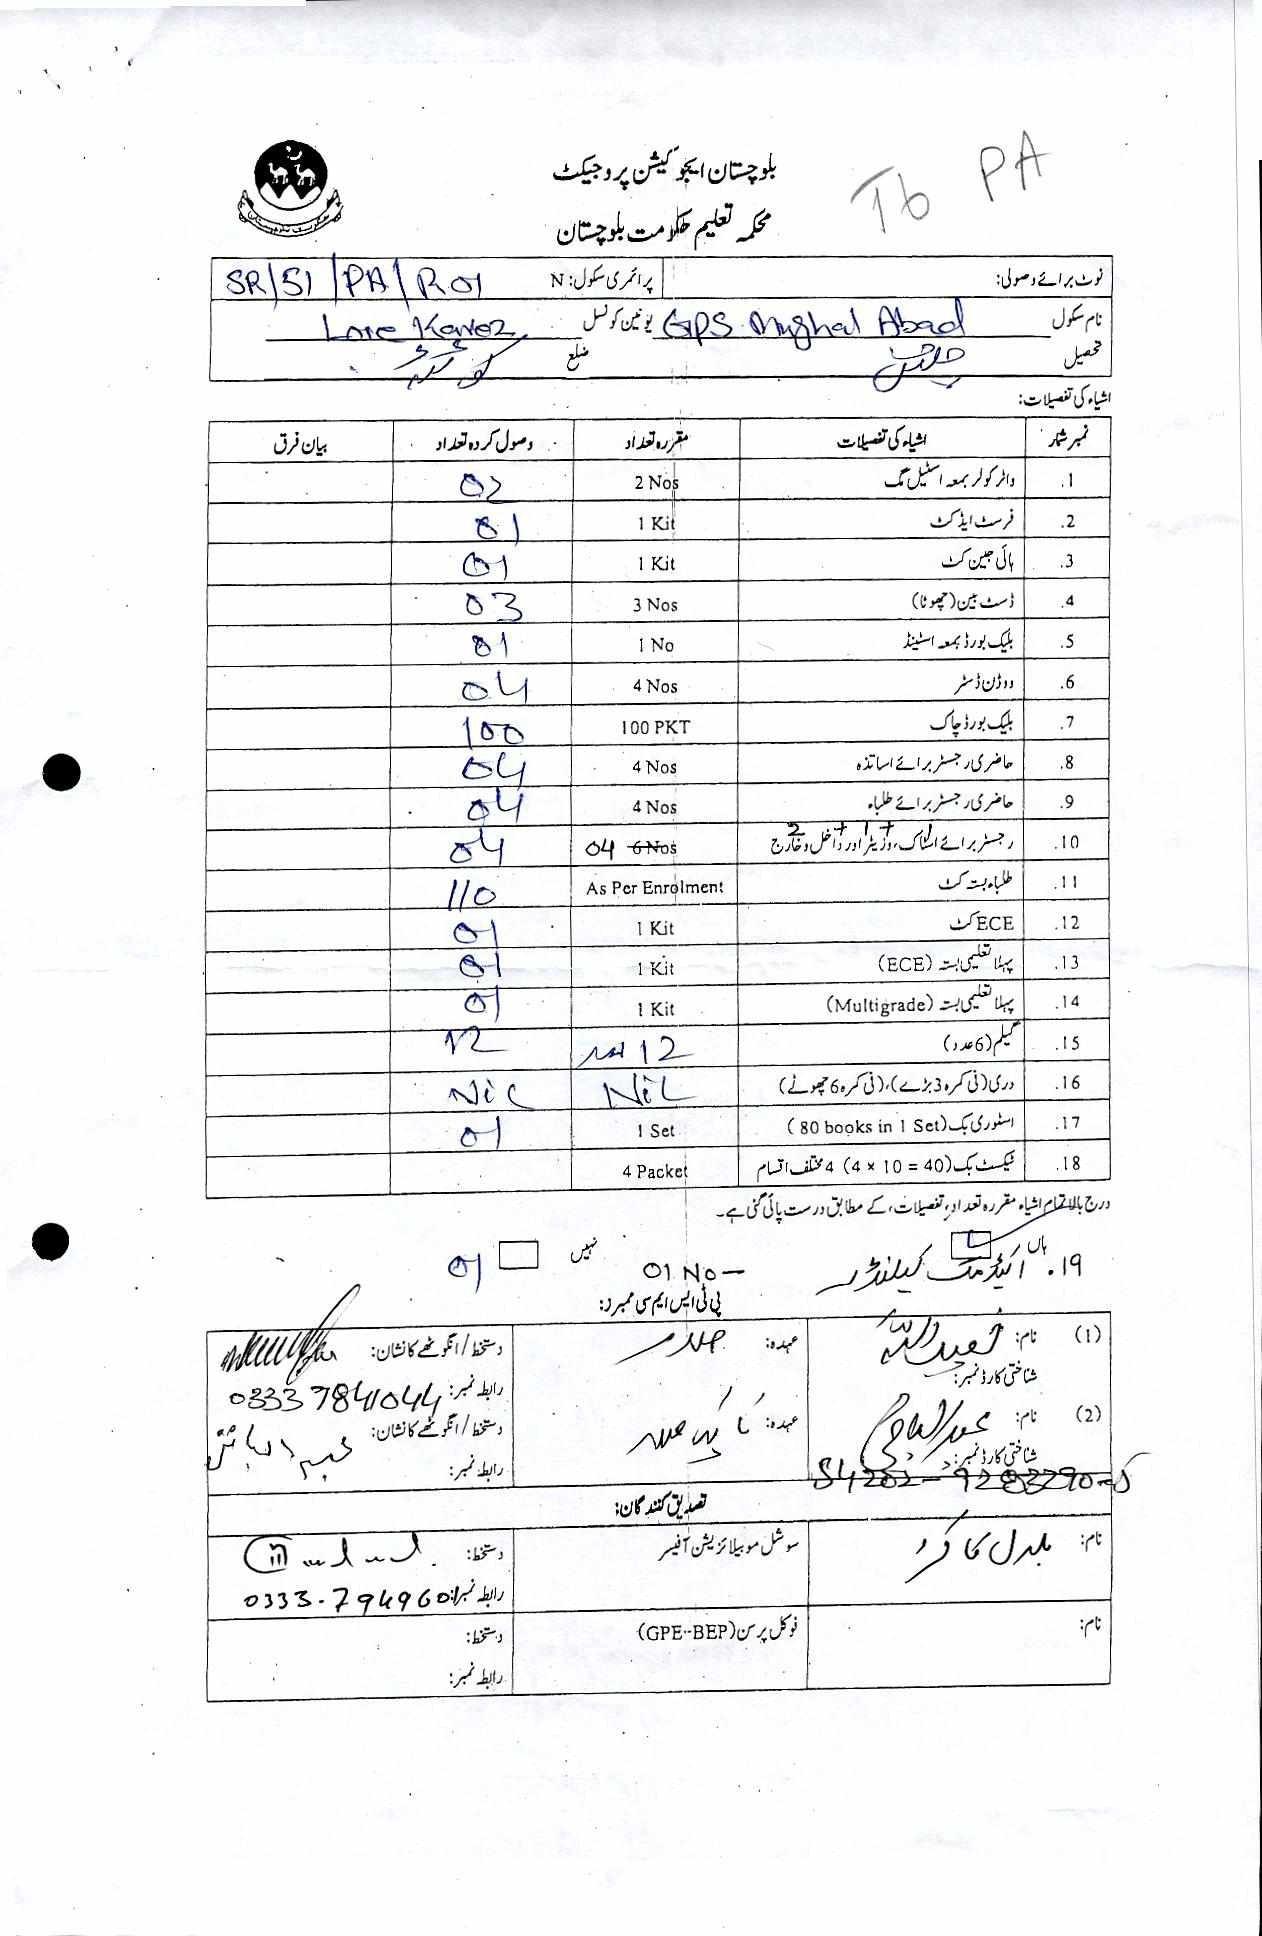 بلوچستان ایجوکیشن پروجیکٹ
To PA
محکمہ تعلیم حکومت بلوچستان
نوٹ برائے وصولی: پرائمری سکول: N SR/51/PA/R01
نام سکول GPS Mughal Abad یونین کونسل
تحصیل ضلع کوئٹہ
اشیاء کی تفصیلات:
نمبر شمار اشیاء کی تفصیلات مقررہ تعداد وصول کردہ تعداد بیان فرق
1. واٹر کولر بمعہ اسٹیل مگ 2 Nos 02
2. فرسٹ ایڈ کٹ 1 Kit 01
3. ہائی جین کٹ 1 Kit 01
4. ڈسٹ بین (چھوٹا) 3 Nos 03
5. بلیک بورڈ بمعہ اسٹینڈ 1 No 01
6. ووڈن ڈسٹر 4 Nos 04
7. بلیک بورڈ چاک 100 PKT 100
8. حاضری رجسٹر برائے اساتذہ 4 Nos 04
9. حاضری رجسٹر برائے طلباء 4 Nos 04
10. رجسٹر برائے اسٹاک، وزیٹر اور داخل و خارج 2 + 1 + 1 6 Nos 04 04
11. طلباء بستہ کٹ As Per Enrolment 110
12. ECE کٹ 1 Kit 01
13. پہلا تعلیمی بستہ (ECE) 1 Kit 01
14. پہلا تعلیمی بستہ (Multigrade) 1 Kit 01
15. گلیم (6 عدد) 12 عدد 12
16. دری (فی کمرہ 3 بڑے)، (فی کمرہ 6 چھوٹے) Nil Nil
17. اسٹوری بک (80 books in 1 Set) 1 Set 01
18. ٹیکسٹ بک (4 × 10 = 40) 4 مختلف اقسام 4 Packet
درج بالا تمام اشیاء مقررہ تعداد، تفصیلات، کے مطابق درست پائی گئی ہے۔
ہاں نہیں
19. اکیڈمک کیلنڈر 01 No – 01
پی ٹی ایس ایم سی ممبرد:
(1) نام: عہدہ: صدر دستخط / انگوٹھے کا نشان:
شناختی کارڈ نمبر: رابطہ نمبر: 0333 7841044
(2) نام: عہدہ: نائب صدر دستخط / انگوٹھے کا نشان:
شناختی کارڈ نمبر: رابطہ نمبر:
54202-9203290-5
تصدیق کنندگان:
نام: سوشل موبیلائزیشن آفیسر دستخط:
رابطہ نمبر: 0333-7949601
نام: فوکل پرسن (GPE-BEP) دستخط:
رابطہ نمبر: